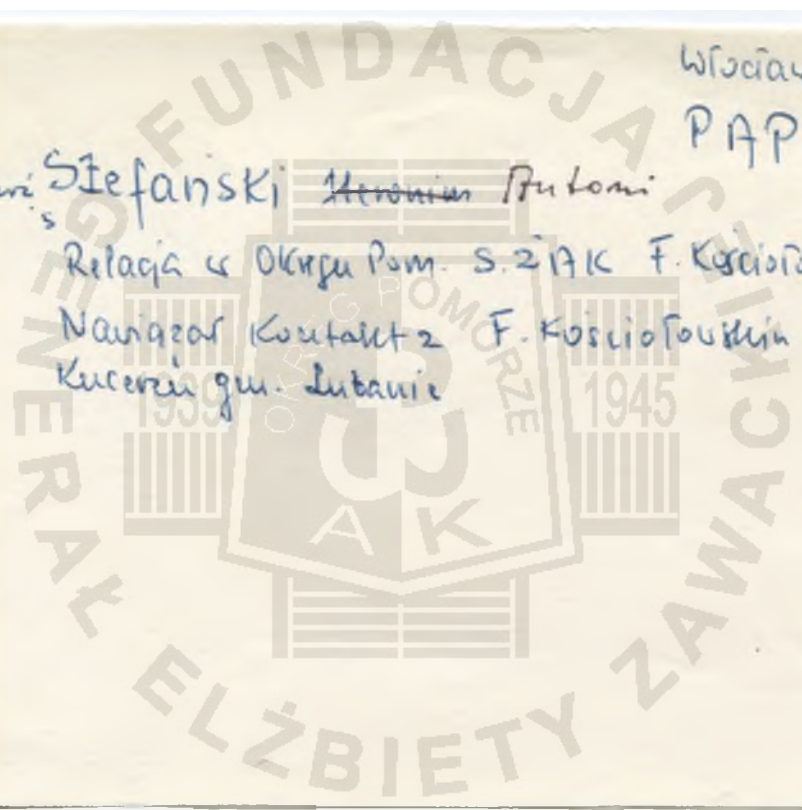 Włocław
PAP
Stefański ~~Hieronim~~ Antoni
s
Relacja w Okręgu Pom. S.ZAK F. Kościoło
Nawiązał Kontakt z F. Kościołowskim
gm. Lubanie
FUNDACJA GENERAŁ ELŻBIETY ZAWACKIEJ
OKRĘG POMORZE
1939 1945
AK